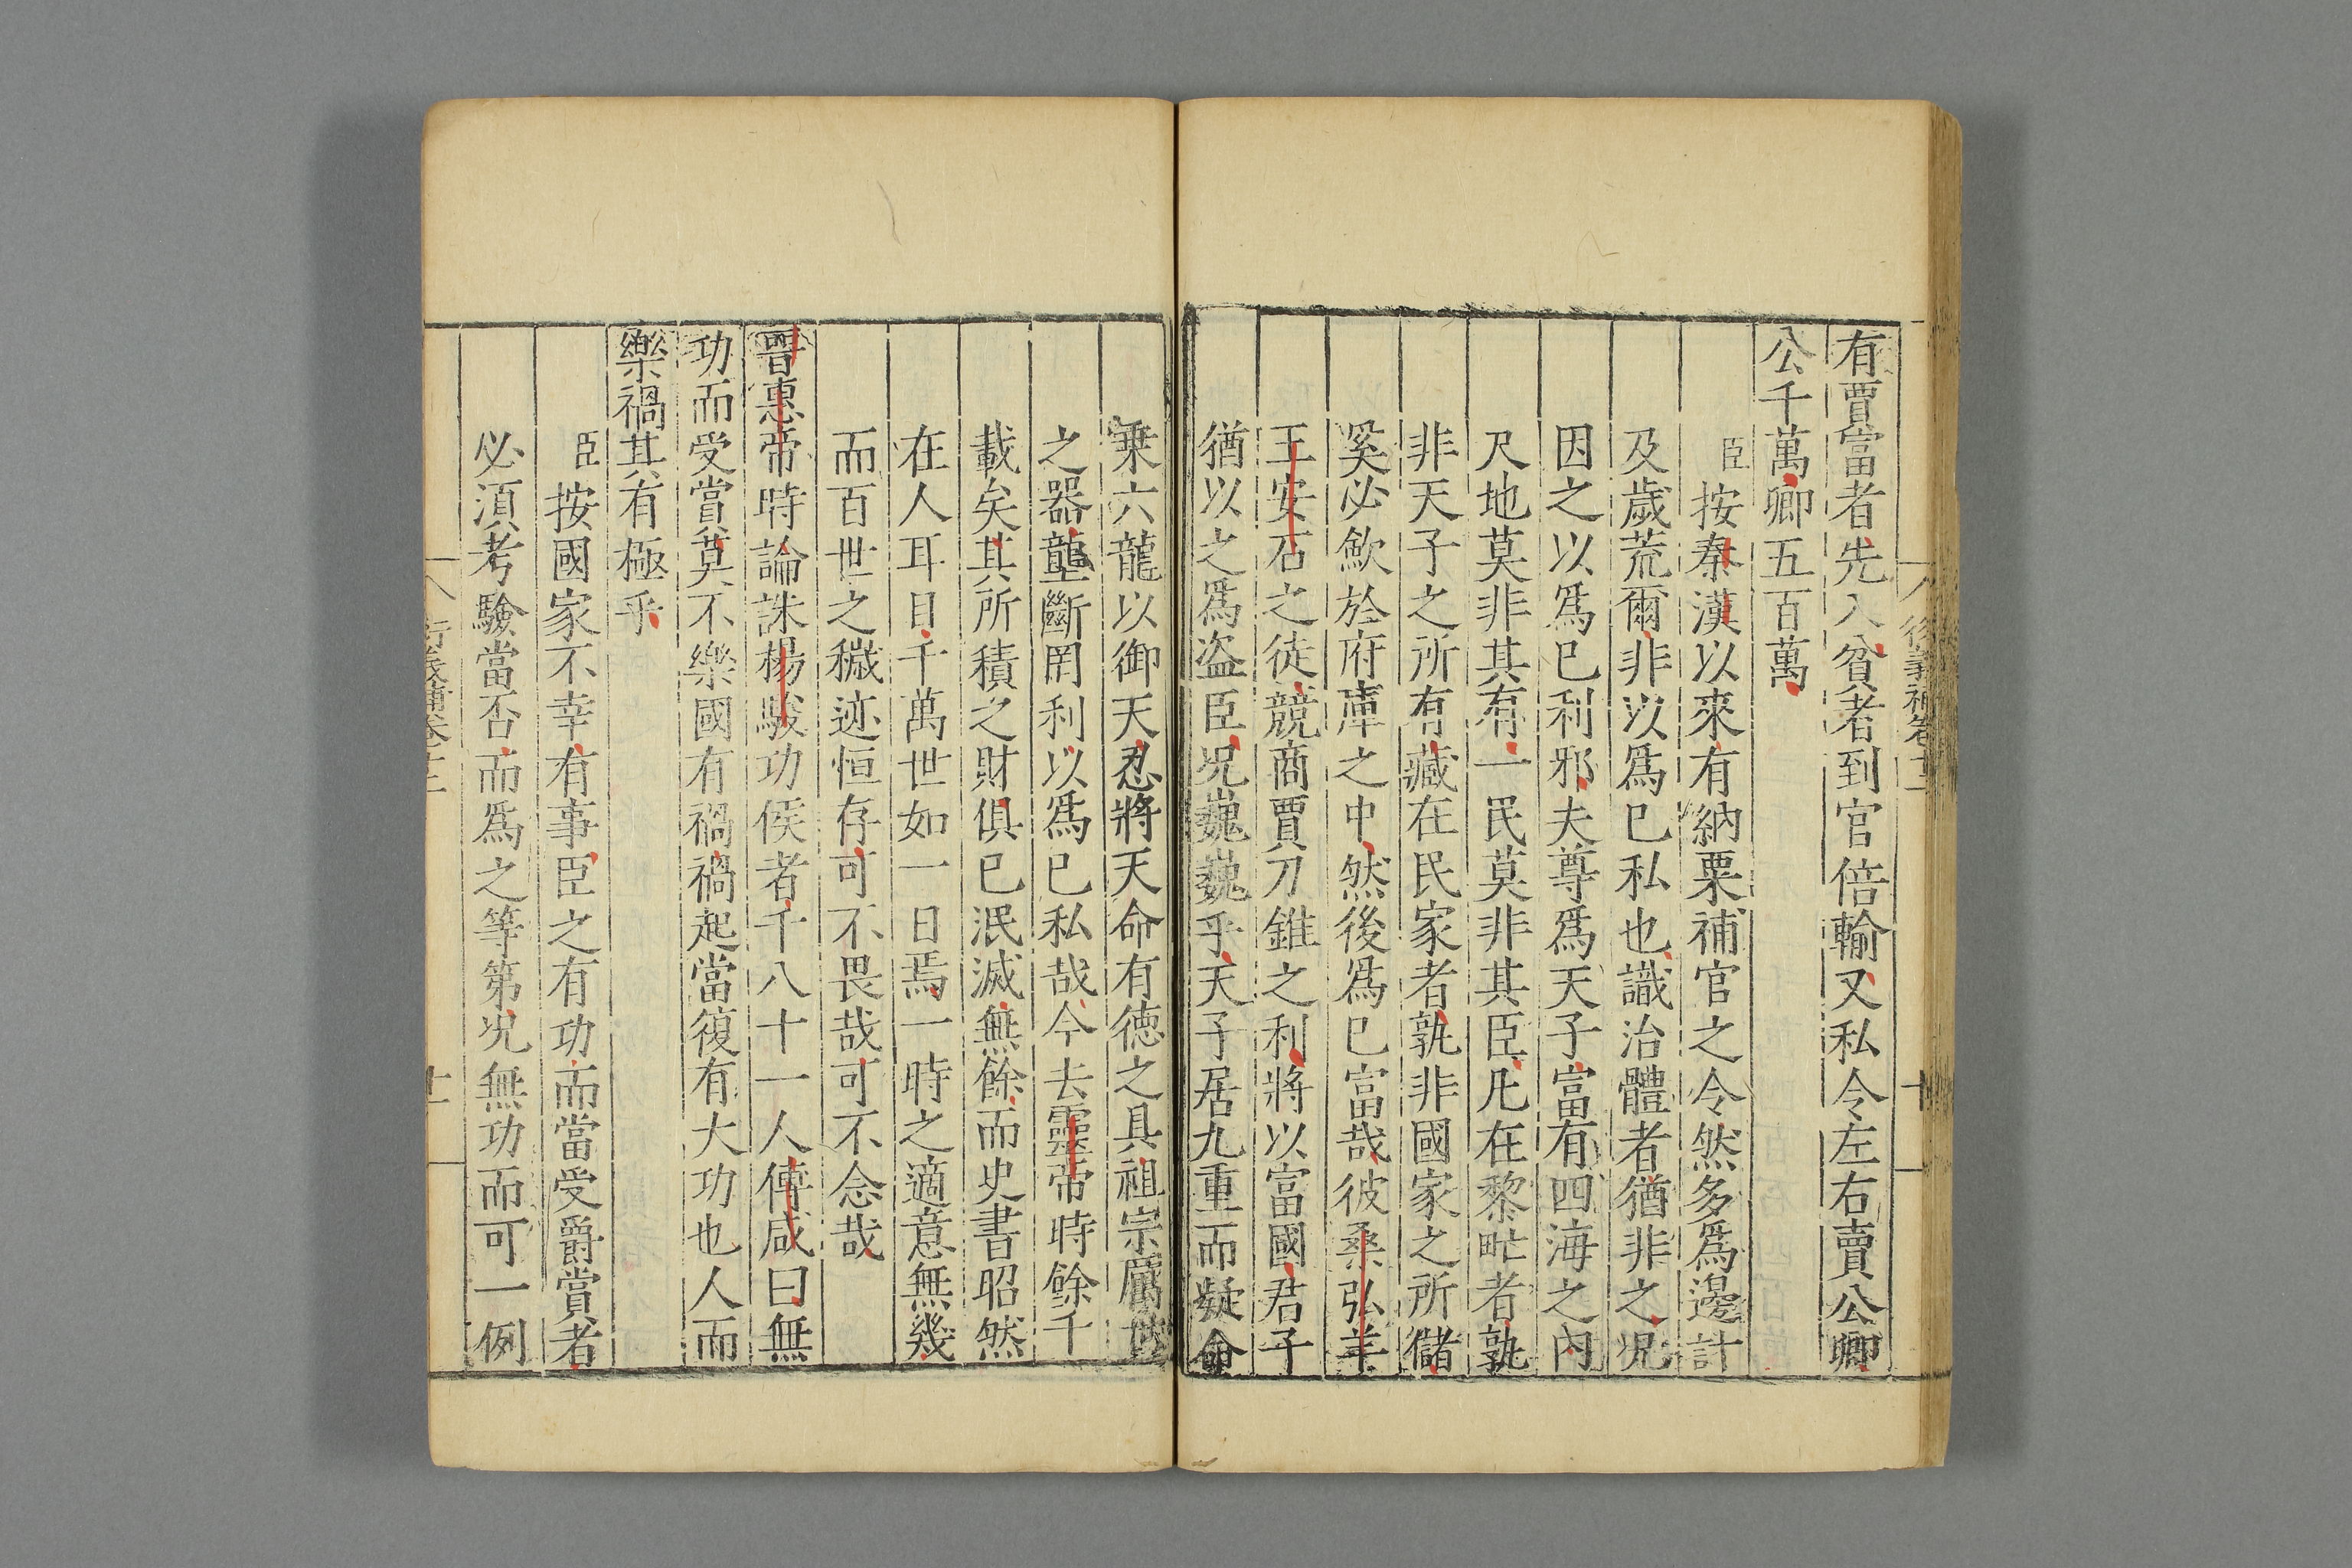 有賈富者先入貧者到官倍輸又私令左右賣公卿
公千萬卿五百萬
臣按秦漢以來有納粟補官之令然多爲邊計
及歲荒爾非以爲已私也識治體者猶非之况
因之以爲已利邪夫尊爲天子富有四海之內
尺地莫非其有一民莫非其臣凡在黎甿者孰
非天子之所有藏在民家者孰非國家之所儲
奚必歛於府庫之中然後爲已富哉彼桑弘羊
王安石之徒競商賈刀錐之利將以富國君子
猶以之爲盗臣况巍巍乎天子居九重而凝命
乗六龍以御天忍將天命有德之具祖宗厲世
之器壟斷罔利以爲已私哉今去靈帝時餘千
載矣其所積之財俱已泯滅無餘而史書昭然
在人耳目千萬世如一日焉一時之適意無幾
而百世之穢迹恒存可不畏哉可不念哉
晋惠帝時論誅楊駿功侯者千八十一人傅咸曰無
功而受賞莫不樂國有禍禍起當復有大功也人而
樂禍其有極乎
臣按國家不幸有事臣之有功而當受爵賞者
必須考驗當否而爲之等第况無功而可一例